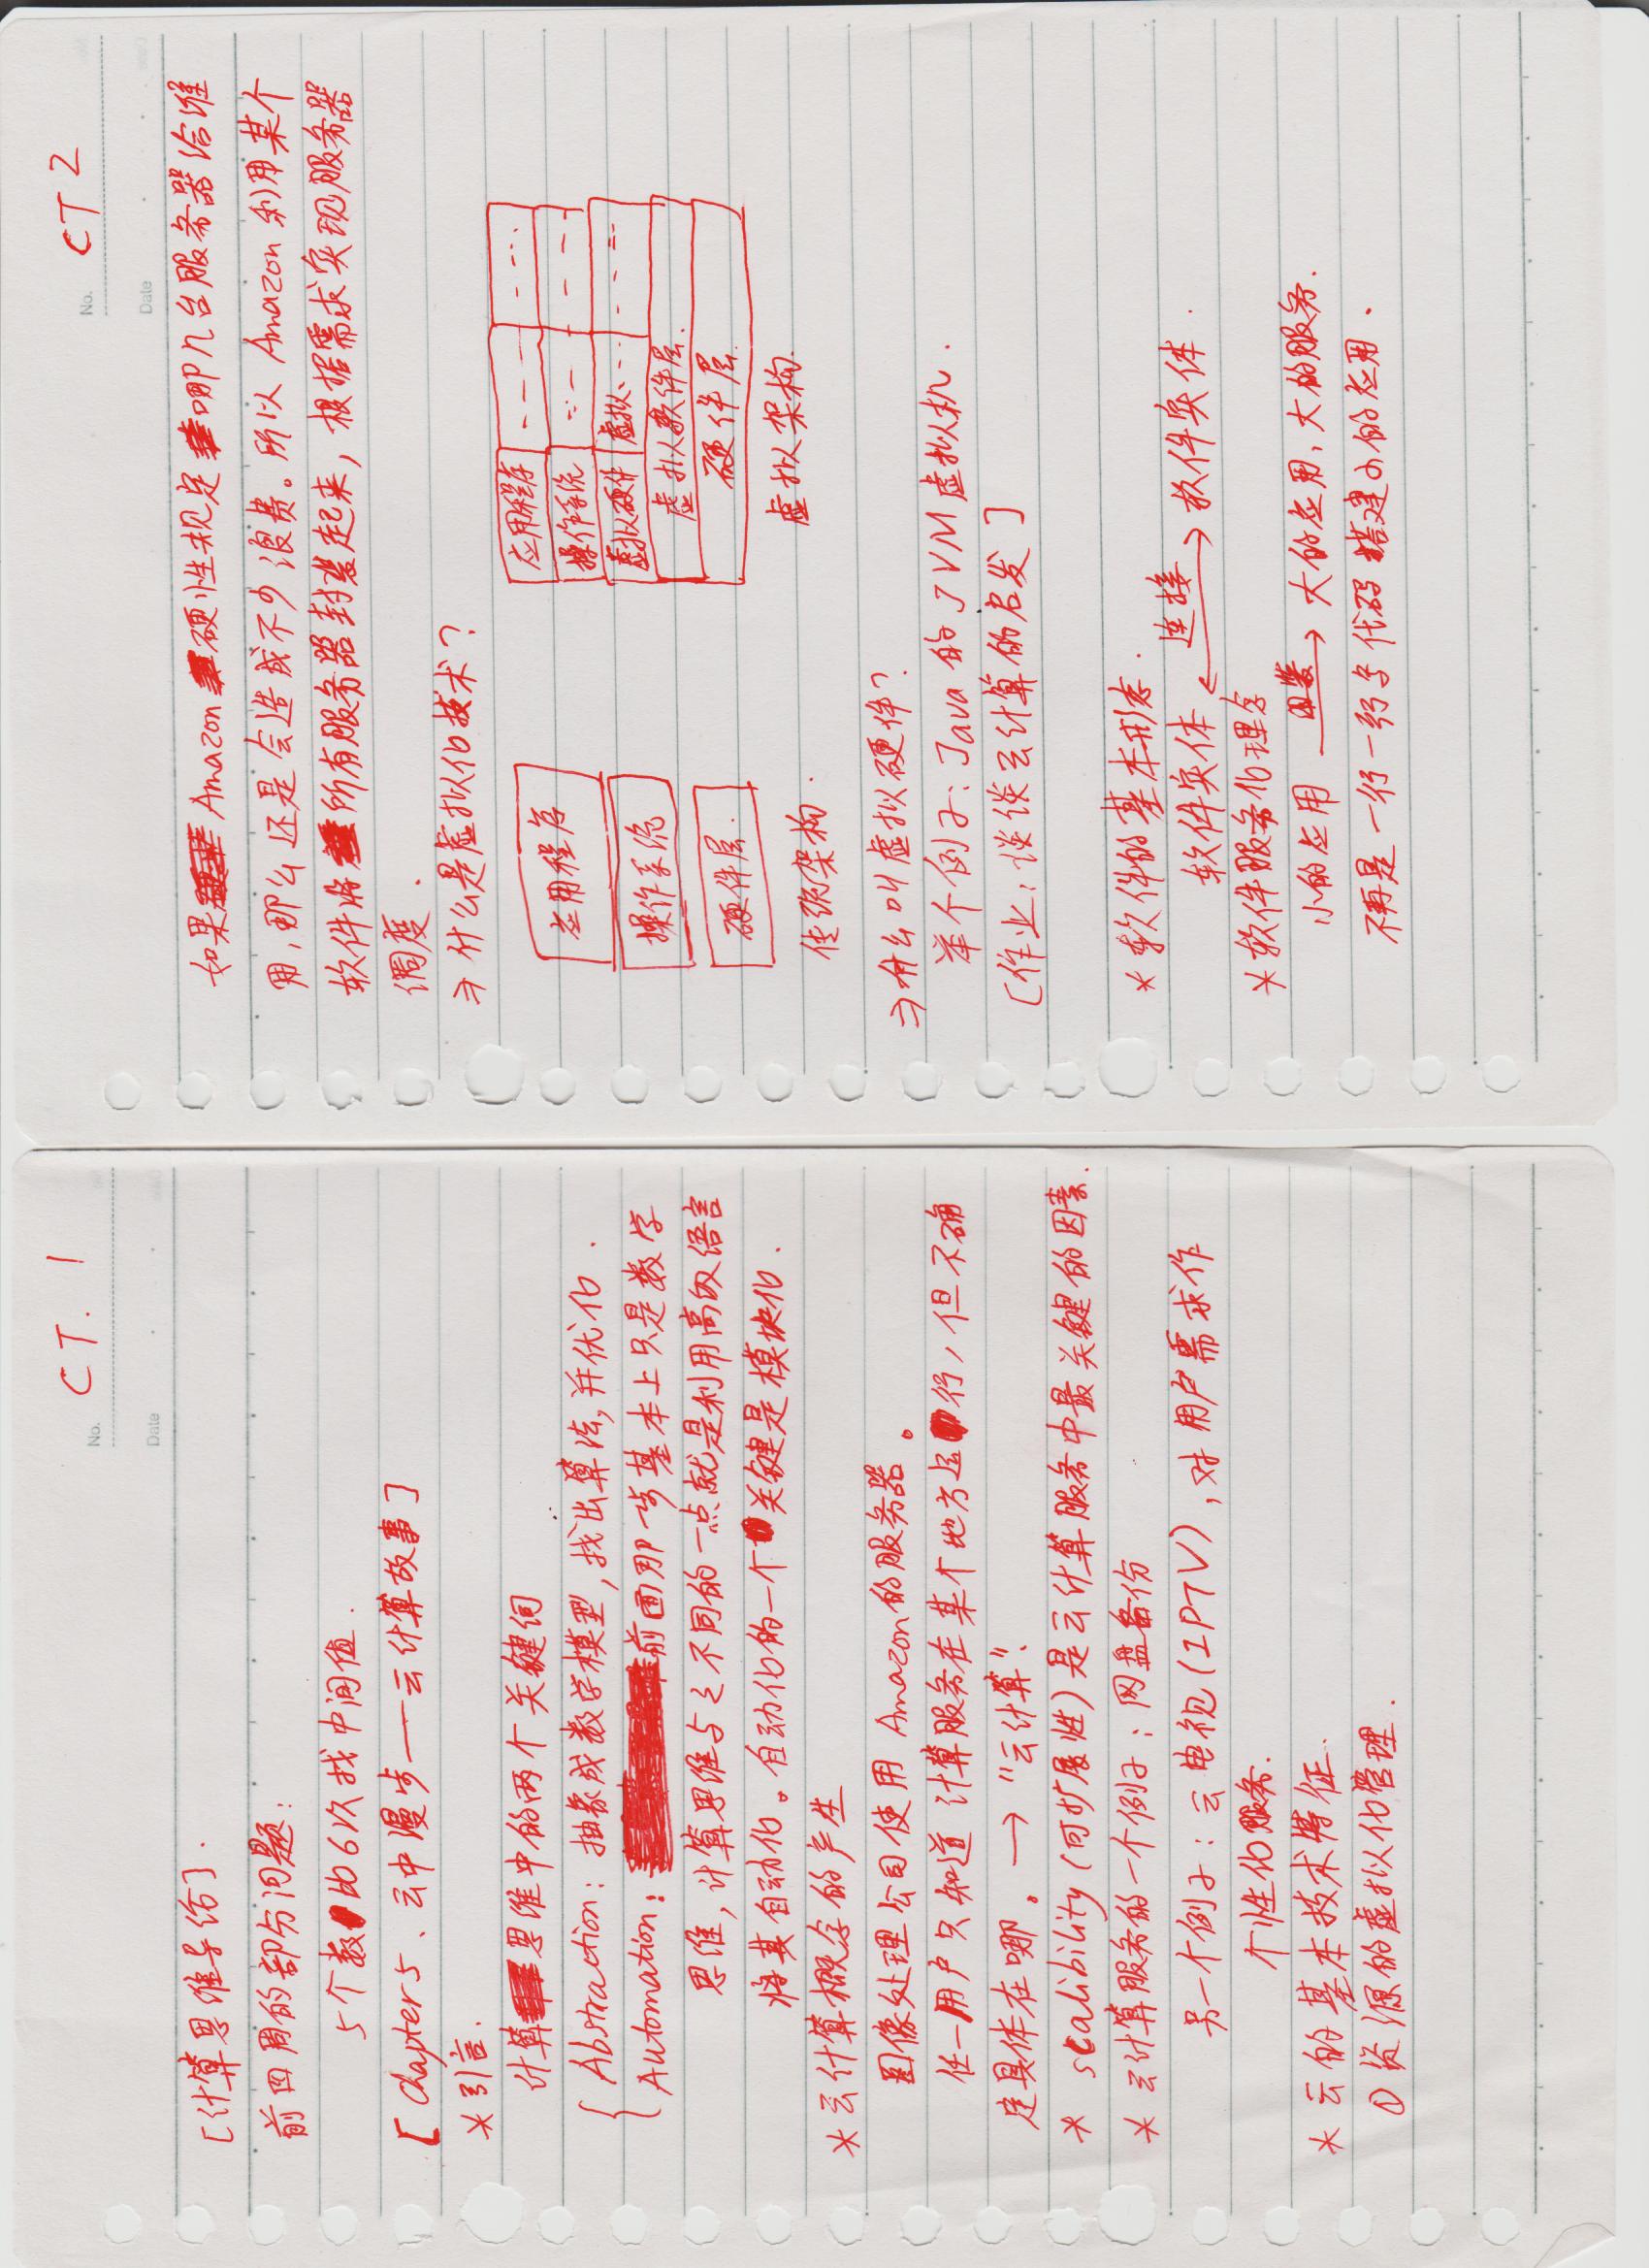 No. CT. 1
Date
[计算思维导论].
前四周的部分问题:
5个数比6次找中间值.
[Chapter 5、云中漫步——云计算故事]
* 引言.
计算思维中的两个关键词
Abstraction: 抽象成数学模型,找出算法,并优化.
Automation: 前面那一步基本上只是数学
思维,计算思维与之不同的一点就是利用高级语言
将其自动化。自动化的一个关键是模块化.
* 云计算概念的产生
图像处理公司使用 Amazon的服务器。
任一用户只知道 计算服务在某个地方运行,但不确
定具体在哪。→ "云计算".
* scalibility (可扩展性)是云计算服务中最关键的因素.
* 云计算服务的一个例子: 网盘备份
另一个例子: 云电视(IPTV),对用户需求作
个性化服务.
* 云的基本技术特征.
① 资源的虚拟化管理.
No. CT 2
Date
如果 Amazon 硬性规定 哪几台服务器给谁
用,那么还是会造成不少浪费。所以 Amazon 利用某个
软件将所有服务器封装起来,根据需求实现服务器
调度.
⇒ 什么是虚拟化技术?
应用程序
操作系统
硬件层.
传统架构.
应用程序 --- ---
操作系统 --- ---
虚拟硬件 虚拟... ---
虚拟软件层.
硬件层.
虚拟架构.
⇒ 什么叫虚拟硬件?
举个例子: Java 的 JVM 虚拟机.
[作业: 谈谈云计算的启发]
* 软件的基本形态.
连接
软件实体 ↔ 软件实体.
* 软件服务化理念
小的应用 → 大的应用,大的服务.
不再是一行一行写代码搭建小的应用.